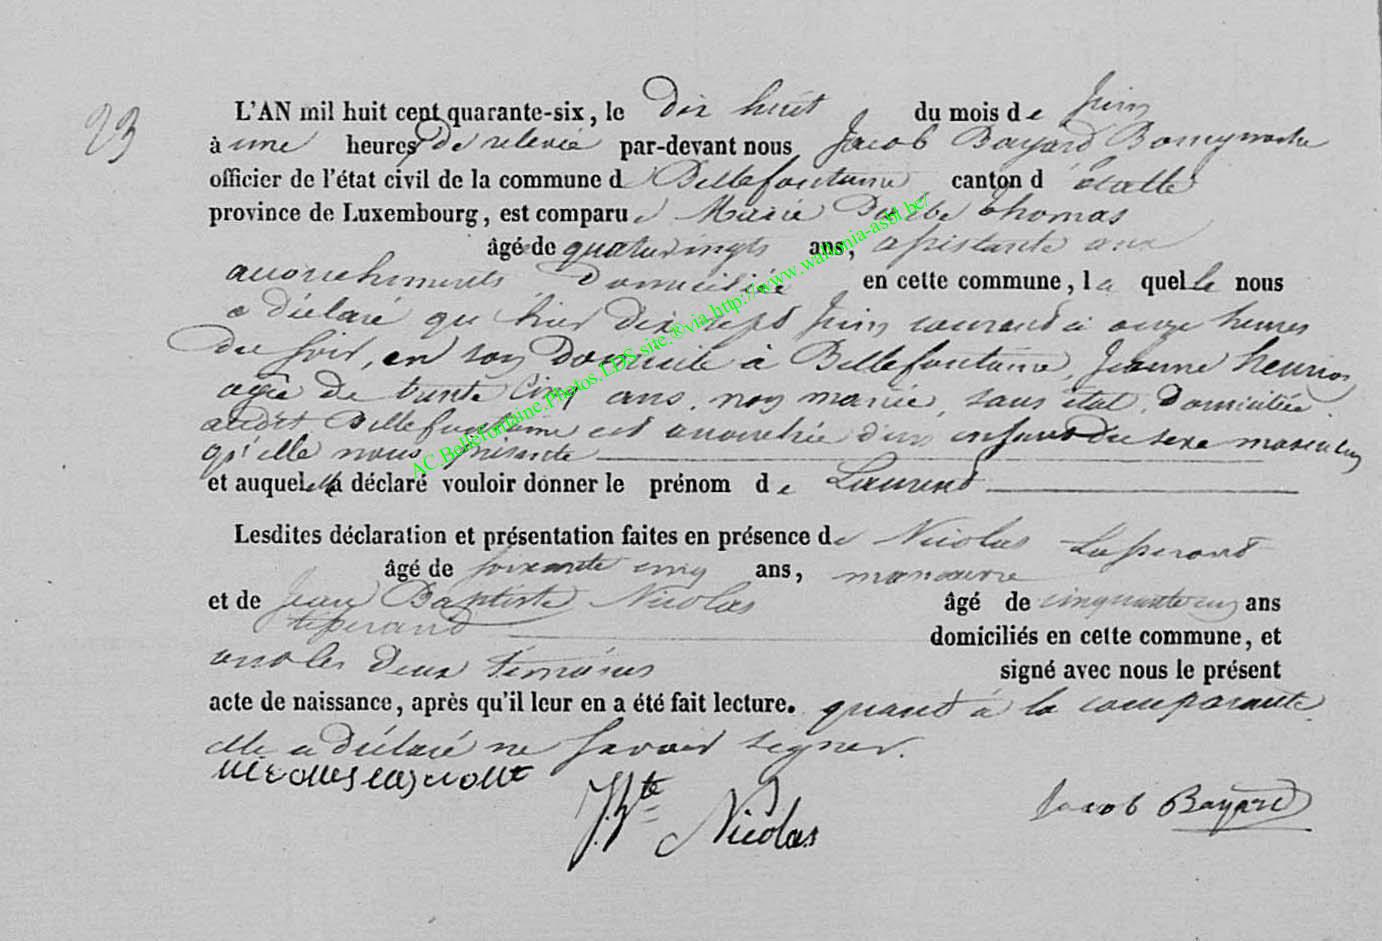 23
L'AN mil huit cent quarante-six, le dix huit du mois de juin
à une heures de relevée par-devant nous Jacob Bayard Bourgmestre
officier de l'état civil de la commune de Bellefontaine canton d'Etalle
province de Luxembourg, est comparue Marie Barbe Thomas
âgé de quatrevingts ans, assistante aux
accouchements domiciliée en cette commune, la quelle nous
a déclaré qu'hier dix sept juin courant à onze heures
du soir, en son domicile à Bellefontaine, Jeanne henrion
agée de trente cinq ans, non mariée, sans état, domiciliée
audit Bellefontaine est accouchée d'un enfant du sexe masculin
qu'elle nous présente
et auquel elle a déclaré vouloir donner le prénom de Laurent
Lesdites déclaration et présentation faites en présence de Nicolas
âgé de soixante cinq ans, manœuvre
et de Jean Baptiste Nicolas âgé de ans
domiciliés en cette commune, et
ont les deux témoins signé avec nous le présent
acte de naissance, après qu'il leur en a été fait lecture. quant à la comparante
elle a déclaré ne savoir signer.
J. Bte Nicolas
Jacob Bayard
AC.Bellefontaine.Photos.LDS.site.®via.http://www.wallonia-asbl.be/